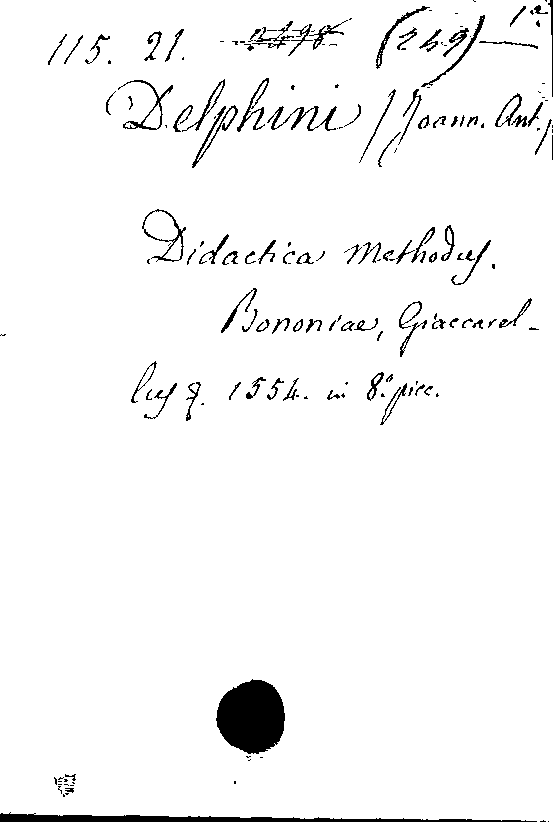 115. 21. (249) 1ª
Delphini /Joann. Ant./
Didactica Methodus.
Bononiae, Giaccarel-
lus q. 1554. in 8.º picc.